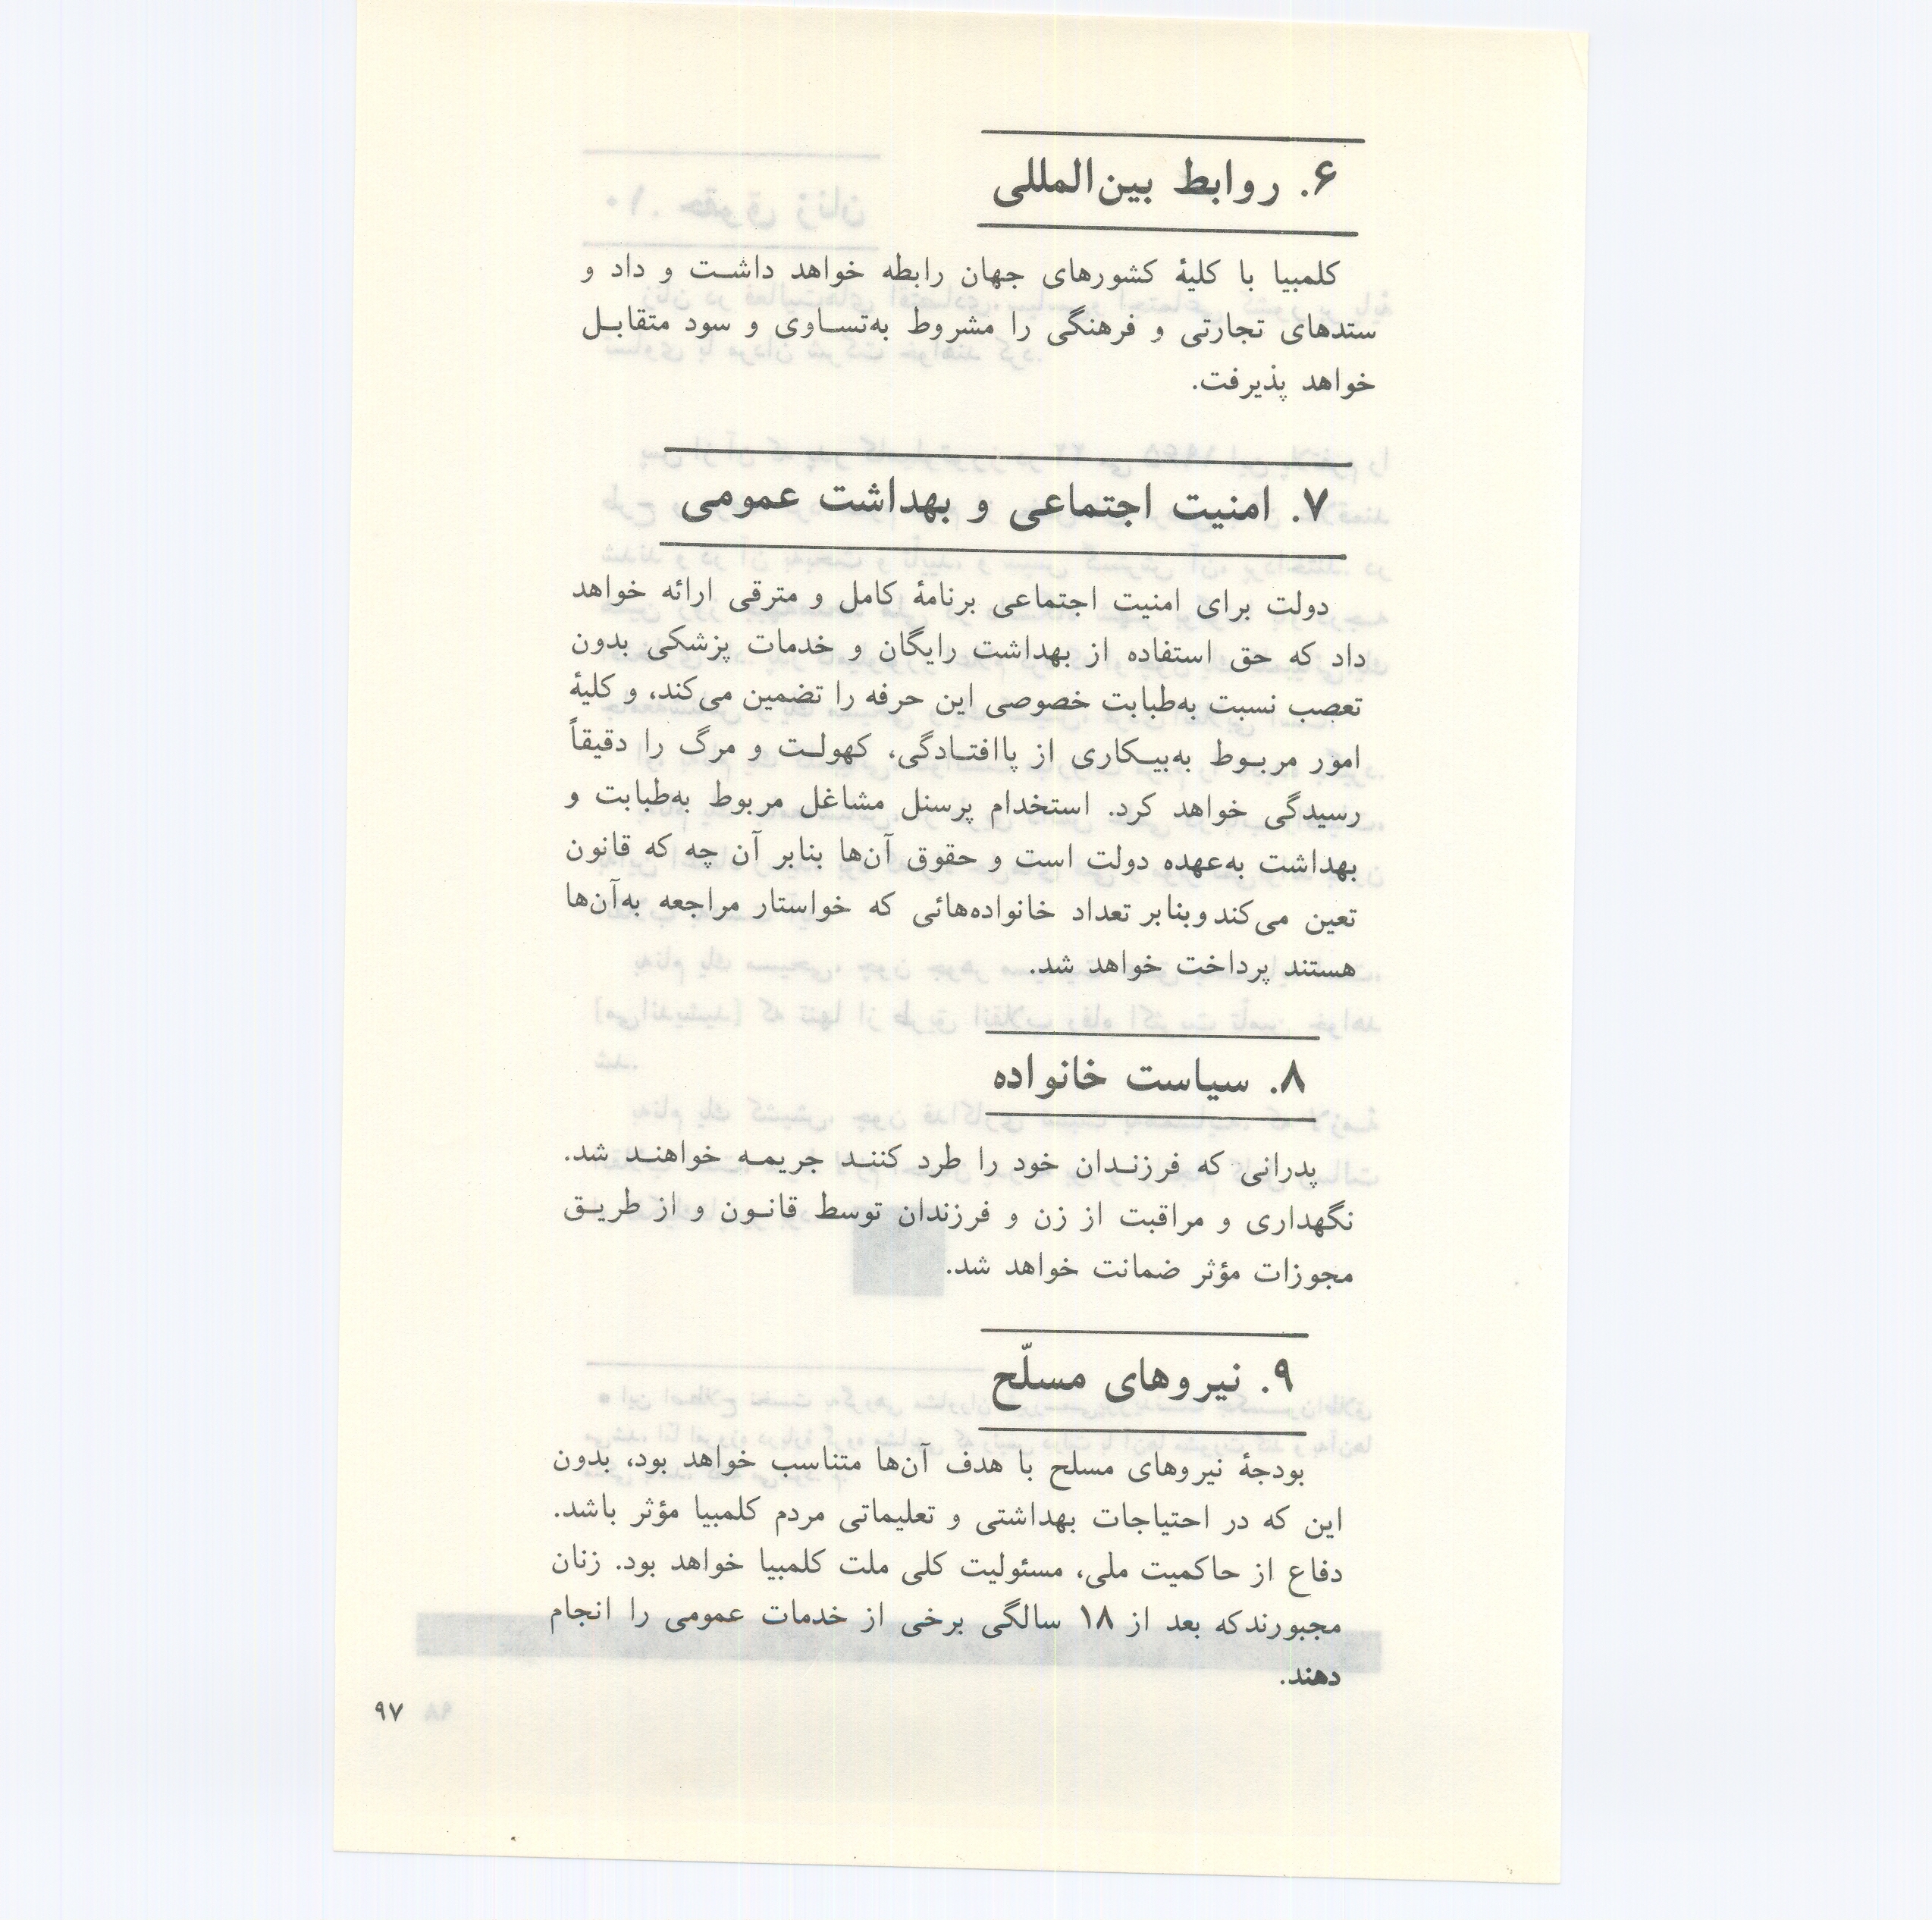 ۶. روابط بین‌المللی
کلمبیا با کلیهٔ کشورهای جهان رابطه خواهد داشت و داد و
ستدهای تجارتی و فرهنگی را مشروط به‌تساوی و سود متقابل
خواهد پذیرفت.
۷. امنیت اجتماعی و بهداشت عمومی
دولت برای امنیت اجتماعی برنامهٔ کامل و مترقی ارائه خواهد
داد که حق استفاده از بهداشت رایگان و خدمات پزشکی بدون
تعصب نسبت به‌طبابت خصوصی این حرفه را تضمین می‌کند، و کلیهٔ
امور مربوط به‌بیکاری از پاافتادگی، کهولت و مرگ را دقیقاً
رسیدگی خواهد کرد. استخدام پرسنل مشاغل مربوط به‌طبابت و
بهداشت به‌عهده دولت است و حقوق آن‌ها بنابر آن چه که قانون
تعین می‌کند وبنابر تعداد خانواده‌هائی که خواستار مراجعه به‌آن‌ها
هستند پرداخت خواهد شد.
۸. سیاست خانواده
پدرانی که فرزندان خود را طرد کنند جریمه خواهند شد.
نگهداری و مراقبت از زن و فرزندان توسط قانون و از طریق
مجوزات مؤثر ضمانت خواهد شد.
۹. نیروهای مسلّح
بودجهٔ نیروهای مسلح با هدف آن‌ها متناسب خواهد بود، بدون
این که در احتیاجات بهداشتی و تعلیماتی مردم کلمبیا مؤثر باشد.
دفاع از حاکمیت ملی، مسئولیت کلی ملت کلمبیا خواهد بود. زنان
مجبورندکه بعد از ۱۸ سالگی برخی از خدمات عمومی را انجام
دهند.
۹۷